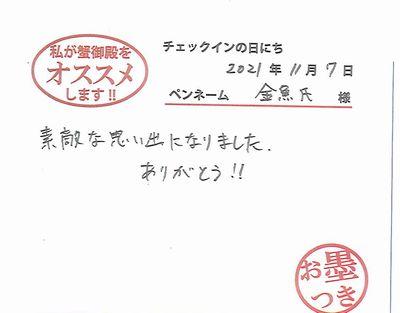 私が蟹御殿を
オススメ
します!!
チェックインの日にち
2021年11月7日
ペンネーム 金魚氏 様
素敵な思い出になりました.
ありがとう!!
お墨
つき